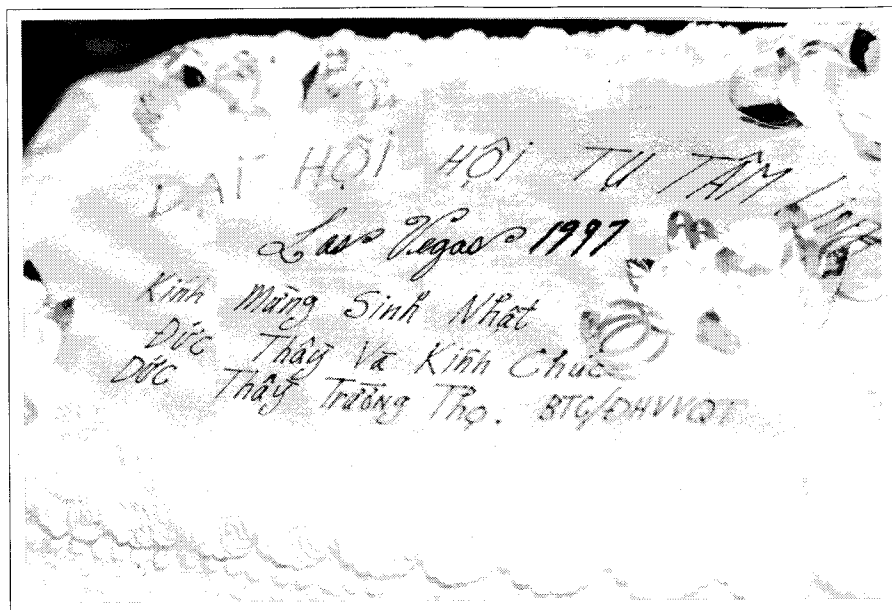 ĐẠI HỘI HỘI TỤ TÂM LINH
Las Vegas 1997
Kính Mừng Sinh Nhật
Đức Thầy Và Kính Chúc
Đức Thầy Trường Thọ. BTC/ĐHVVQT